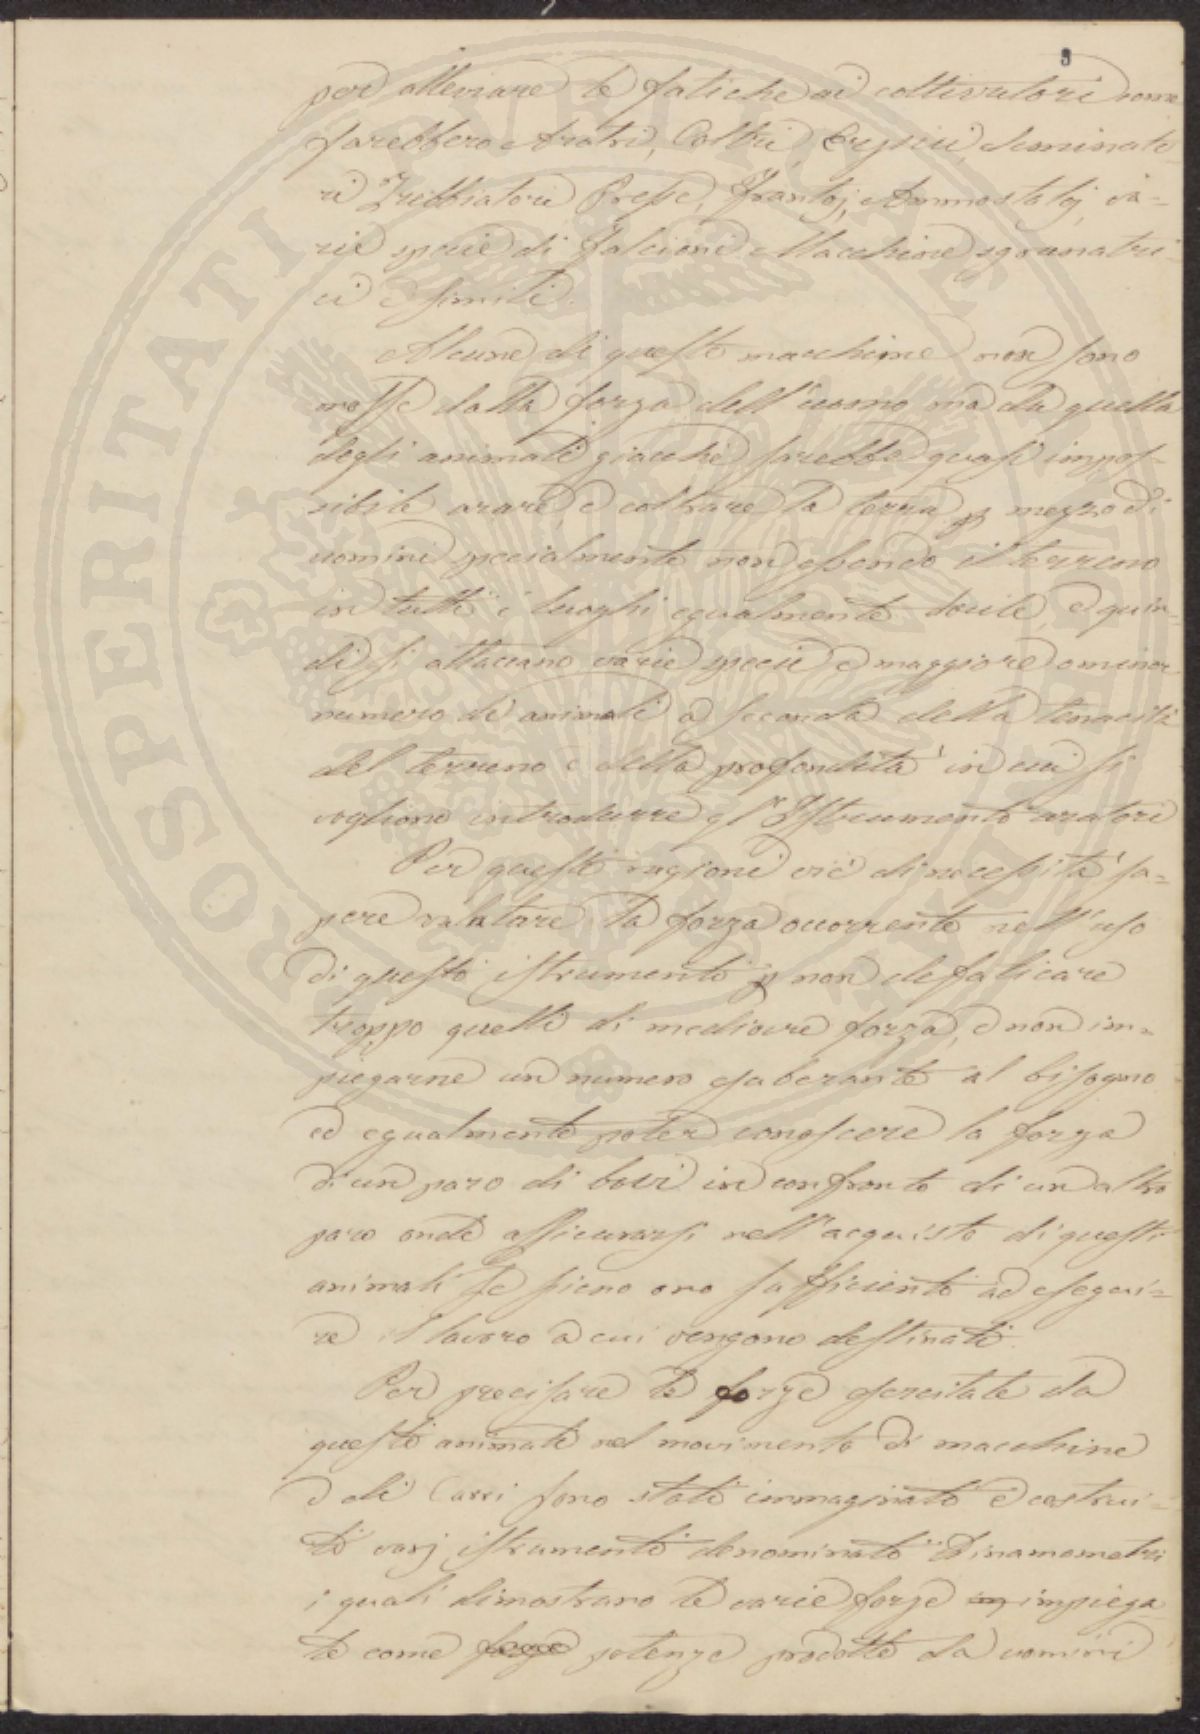 9
per alleviare le fatiche ai coltivatori come
sarebbero Aratri, Coltri, Erpici, Seminato-
ri Trebbiatori Presse, Frantoj, Ammostatoj, va-
rie specie di falcioni Macchine sgranatri-
ci e simili.
Alcune di queste macchine non sono
mosse dalla forza dell'uomo ma da quella
degli animali giacchè sarebbe quasi impos-
sibile arare, e coltrare la terra p mezzo di
uomini specialmente non essendo il terreno
in tutti i luoghi egualmente docile, e quin-
di si attaccano varie specie e maggiore o minor
numero di animali a seconda della tenacità
del terreno e della profondità in cui si
vogliono introdurre gl'Istrumenti aratori
Per queste ragioni vi è di necessità sa-
pere valutare la forza occorrente nell'uso
di questi istrumenti p non defaticare
troppo quelli di mediocre forza, e non im-
piegarne un numero esuberante al bisogno
ed egualmente poter conoscere la forza
di un paro di bovi in confronto di un altro
paro onde assicurarsi nell'acquisto di questi
animali se sieno o no sufficienti ad esegui-
re il lavoro a cui vengono destinati.
Per precisare le forze esercitate da
questi animali nel movimento di macchine
e di Carri sono stati immaginati e costrui-
ti varj istrumenti denominati Dinamometri
i quali dimostrano le varie forze impiega-
te come forze potenze prodotte da uomini
PROSPERITATI PUBLICAE AUGENDAE